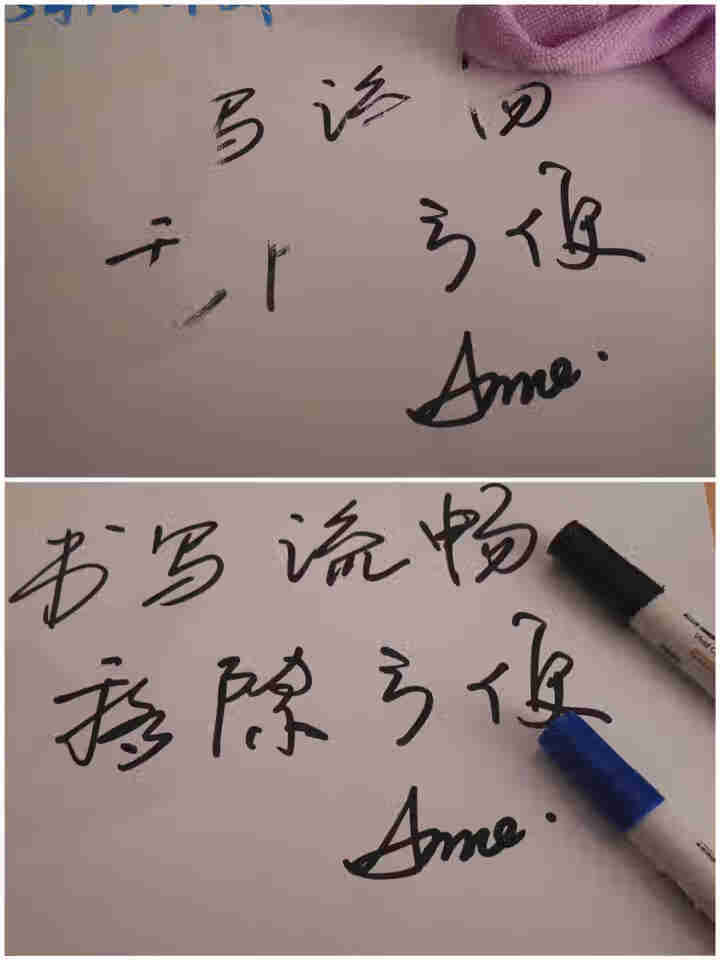 写
方便
Anne.
书写流畅
擦除方便
Anne.